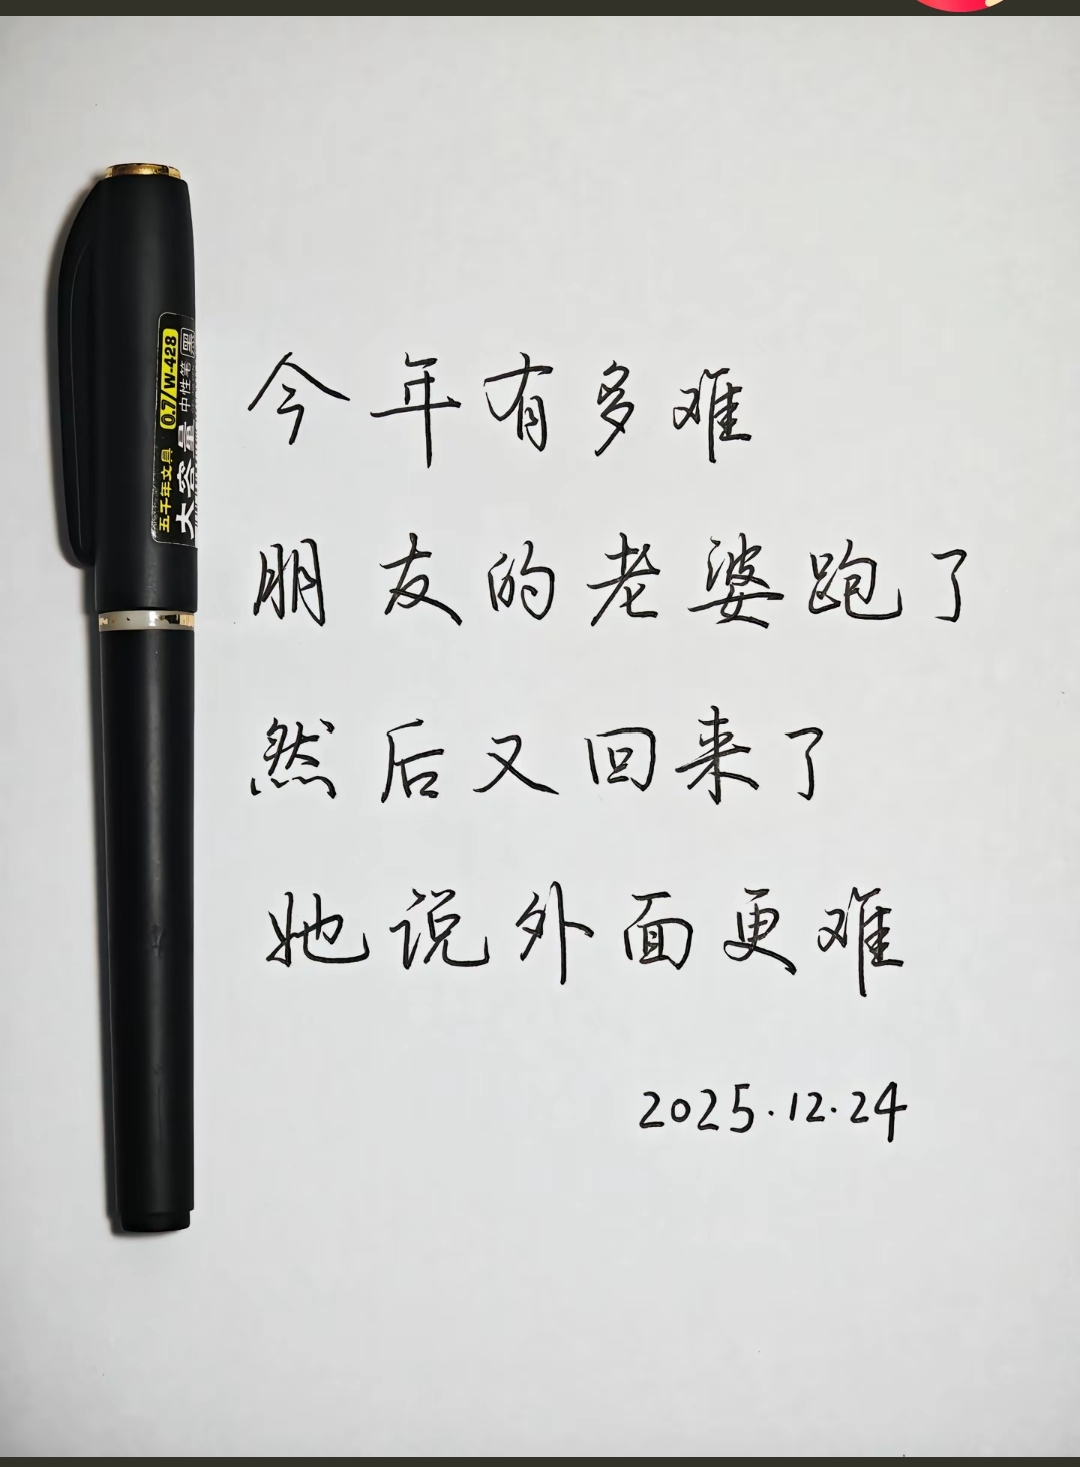 今年有多难
朋友的老婆跑了
然后又回来了
她说外面更难
2025.12.24
五千年文具 0.7/W-428
大容量 中性笔 黑